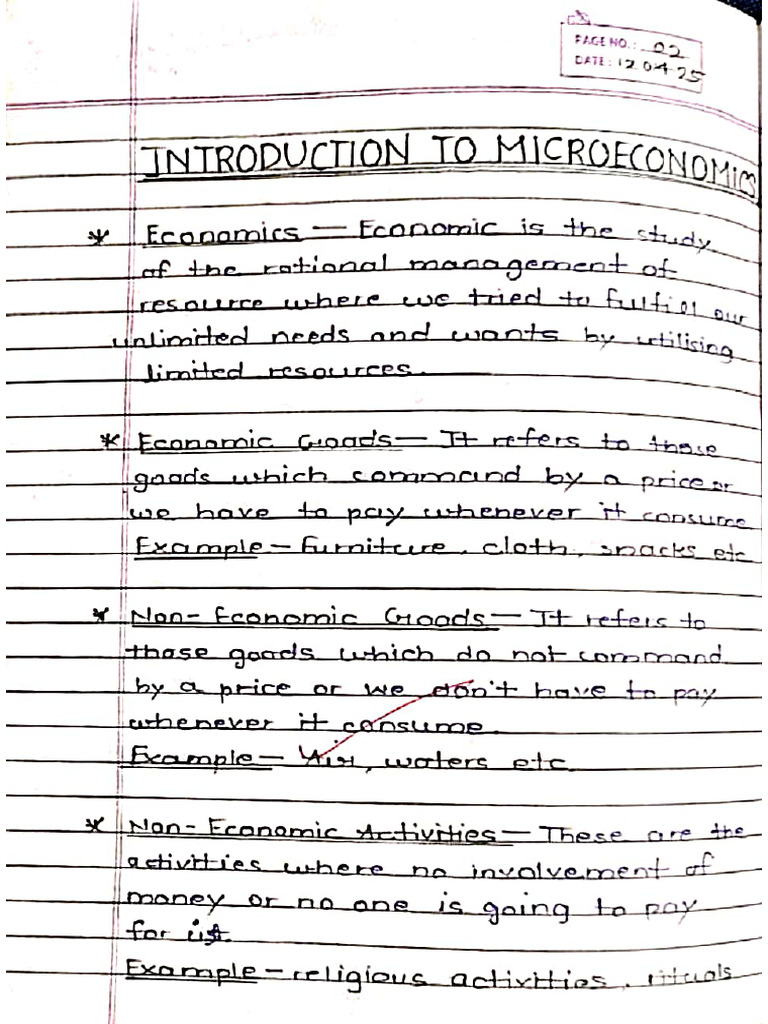 PAGE NO.: 02
DATE: 12 04 25
INTRODUCTION TO MICROECONOMICS
* Economics — Economic is the study
of the rational management of
resource where we tried to fulfill our
unlimited needs and wants by utilising
limited resources.
* Economic Goods — It refers to those
goods which command by a price or
we have to pay whenever it consume
Example — Furniture, cloth, snacks etc
* Non-Economic Goods — It refers to
those goods which do not command
by a price or we don't have to pay
whenever it consume.
Example — Air, waters etc
* Non-Economic Activities — These are the
activities where no involvement of
money or no one is going to pay
for it.
Example — religious activities, rituals